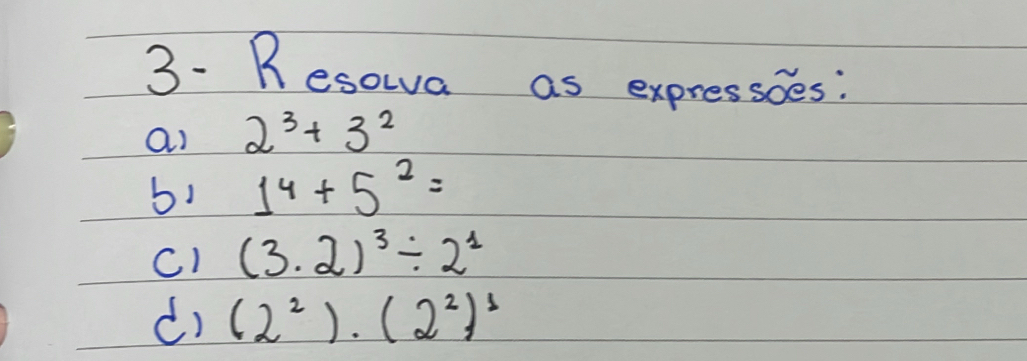 3- Resolva as expressões:
a) 2³ + 3²
b) 1⁴ + 5² =
c) (3.2)³ ÷ 2¹
d) (2²) . (2²)¹